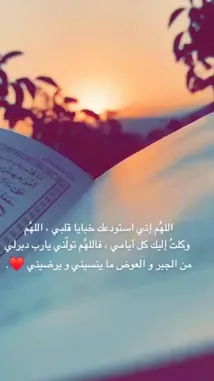 اللهُم إني استودعك خبايا قلبي ، اللهُم
وكلتُ إليك كل أيامي ، فاللهُم تولّني يارب دبرلي
من الجبر و العوض ما ينسيني و يرضيني ♥️.